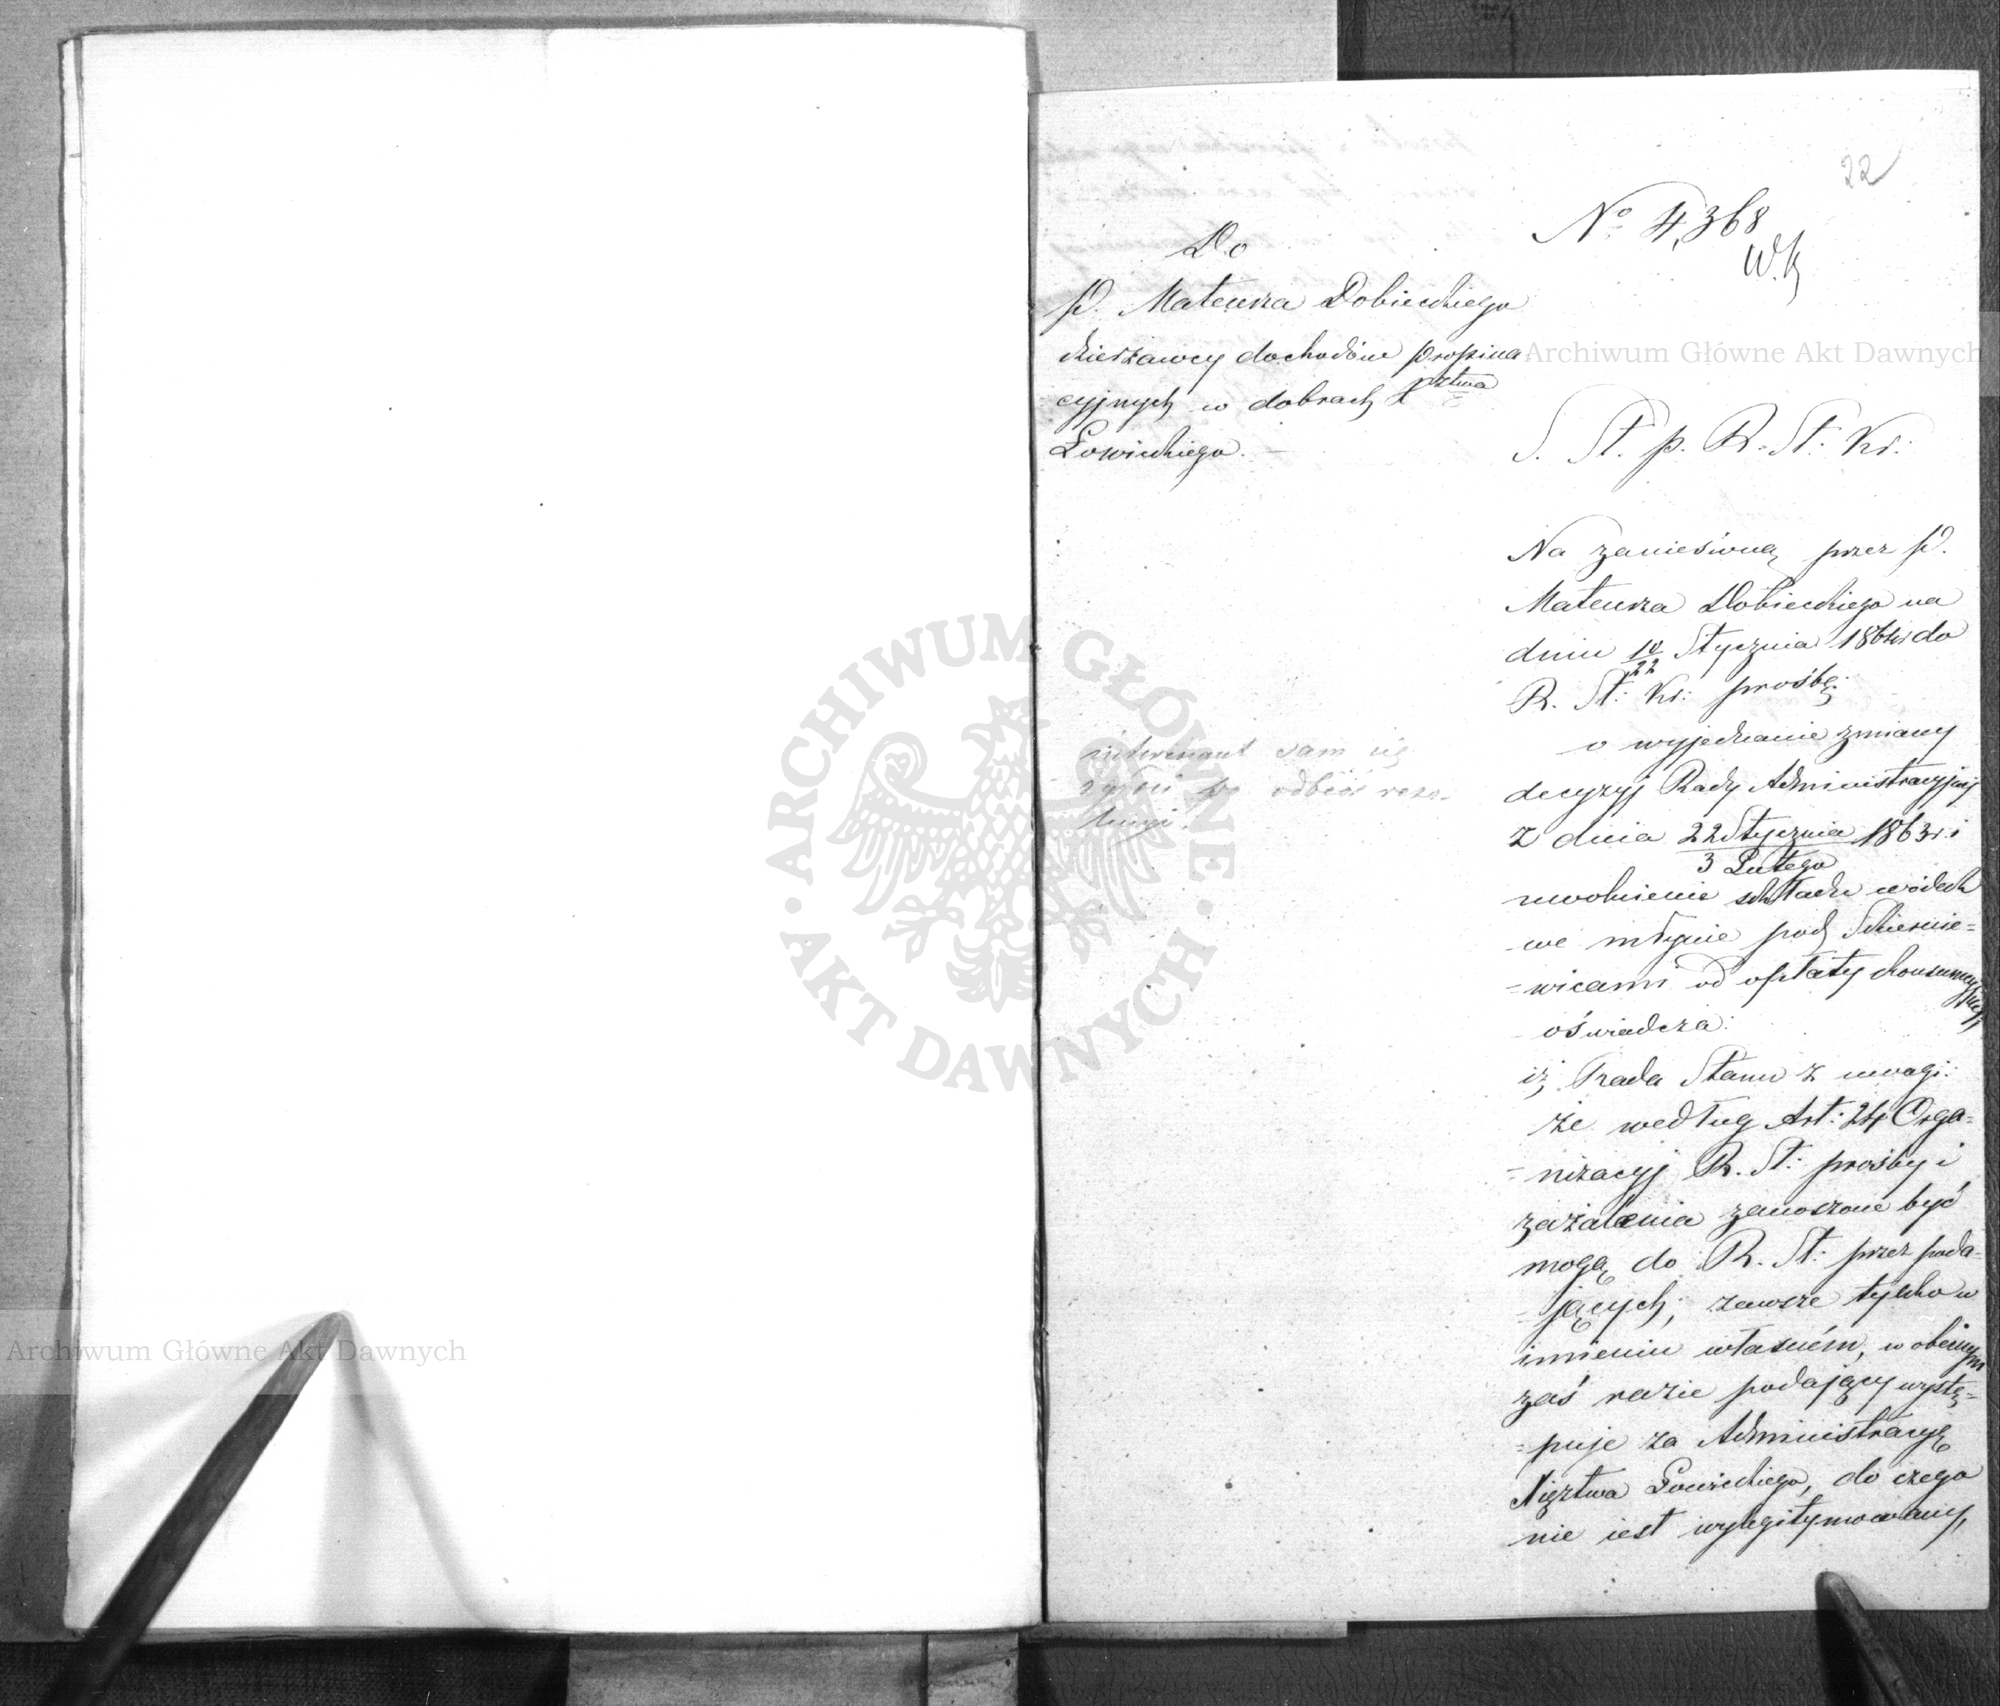 22
№ 4,368
W. K
Do
P. Mateusza Dobieckiego
dzierżawcy dochodów propina
cyjnych w dobrach Xięztwa
Łowickiego. –
S. St. p. R. St: Kr:
Na zaniesioną przez P.
Mateusza Dobieckiego na
dniu 10/22 Stycznia 1864 r do
R. St: Kr: prośbę:
o wyjednanie zmiany
decyzyj Rady Administracyjnej
z dnia 22 Stycznia/3 Lutego 1863 r. i
uwolnienie składu wódek
we młynie pod Skiernie=
=wicami od opłaty konsumcyjnej,
oświadcza:
iż Rada Stanu z uwagi:
że według Art: 24 Orga=
=nizacyj R. St: prośby i
zażalenia zanoszone być
mogą do R. St: przez poda=
=jących, zawsze tylko w
imieniu własném, w obecnym
zaś razie podający wystę=
=puje za Administracyę
Xięztwa Łowickiego, do czego
nie jest wylegitymowany,
interesant sam się
zgłosi po odbiór rezo=
lucyi.
Archiwum Główne Akt Dawnych
ARCHIWUM GŁÓWNE
• AKT DAWNYCH •
Archiwum Główne Akt Dawnych